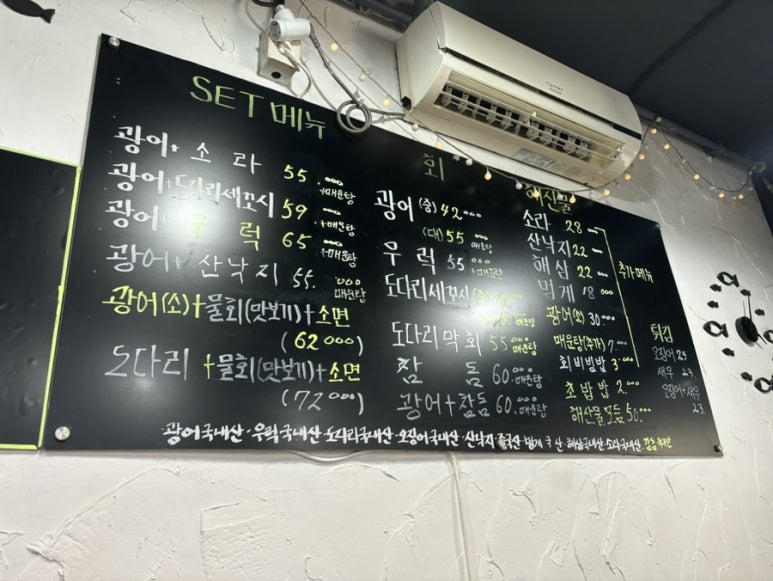 SET 메뉴
광어+소라 55.000
+매운탕
광어+도다리세꼬시 59.000
+매운탕
광어+우럭 65.000
+매운탕
광어+산낙지 55.000
매운탕
광어(소)+물회(맛보기)+소면
(62000)
도다리+물회(맛보기)+소면
(72000)
회
광어(중)42000
(대)55.000
매운탕
우럭 55.000
+매운탕
도다리세꼬시
매운탕
도다리막회 55.000
매운탕
잡돔 60.000
매운탕
광어+잡돔 60.000
매운탕
해산물
소라 28
산낙지 22
해삼 22
멍게 18000
추가메뉴
광어(소) 30.000
매운탕(추가) 7.000
회비빔밥 3.000
초밥밥 2.000
해산물모둠 50.000
튀김
오징어 23
새우 23.
오징어+새우
23.
광어국내산·우럭국내산·도다리국내산·오징어국내산·산낙지중국산 멍게 국 산 해삼국내산 소라국내산.
Carrier